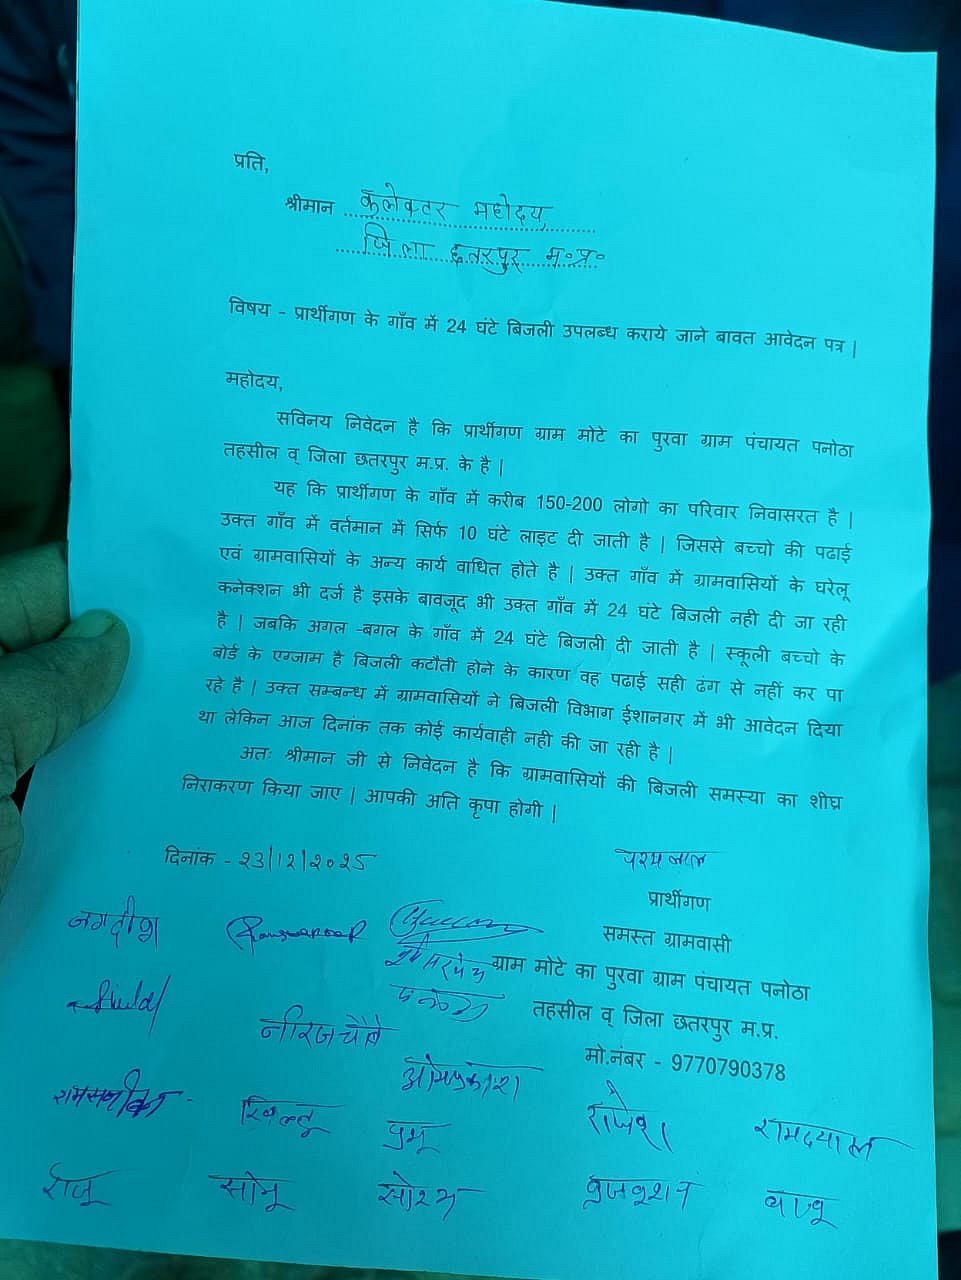 प्रति,
श्रीमान कलेक्टर महोदय,
जिला छतरपुर म०प्र०
विषय - प्रार्थीगण के गाँव में 24 घंटे बिजली उपलब्ध कराये जाने बावत आवेदन पत्र |
महोदय,
सविनय निवेदन है कि प्रार्थीगण ग्राम मोटे का पुरवा ग्राम पंचायत पनोठा
तहसील व् जिला छतरपुर म.प्र. के है |
यह कि प्रार्थीगण के गाँव में करीब 150-200 लोगो का परिवार निवासरत है |
उक्त गाँव में वर्तमान में सिर्फ 10 घंटे लाइट दी जाती है | जिससे बच्चो की पढाई
एवं ग्रामवासियों के अन्य कार्य वाधित होते है | उक्त गाँव में ग्रामवासियों के घरेलू
कनेक्शन भी दर्ज है इसके बावजूद भी उक्त गाँव में 24 घंटे बिजली नही दी जा रही
है | जबकि अगल -बगल के गाँव में 24 घंटे बिजली दी जाती है | स्कूली बच्चो के
बोर्ड के एग्जाम है बिजली कटौती होने के कारण वह पढाई सही ढंग से नहीं कर पा
रहे है | उक्त सम्बन्ध में ग्रामवासियों ने बिजली विभाग ईशानगर में भी आवेदन दिया
था लेकिन आज दिनांक तक कोई कार्यवाही नही की जा रही है |
अतः श्रीमान जी से निवेदन है कि ग्रामवासियों की बिजली समस्या का शीघ्र
निराकरण किया जाए | आपकी अति कृपा होगी |
दिनांक - २३/12/२०२५
परमलाल
प्रार्थीगण
जगदीश
समस्त ग्रामवासी
ग्राम मोटे का पुरवा ग्राम पंचायत पनोठा
तहसील व् जिला छतरपुर म.प्र.
नीरज चौबे
मो.नंबर - 9770790378
ओमप्रकाश
प्रभू
राजेश
रामदयाल
राजू
सोनू
बाबू